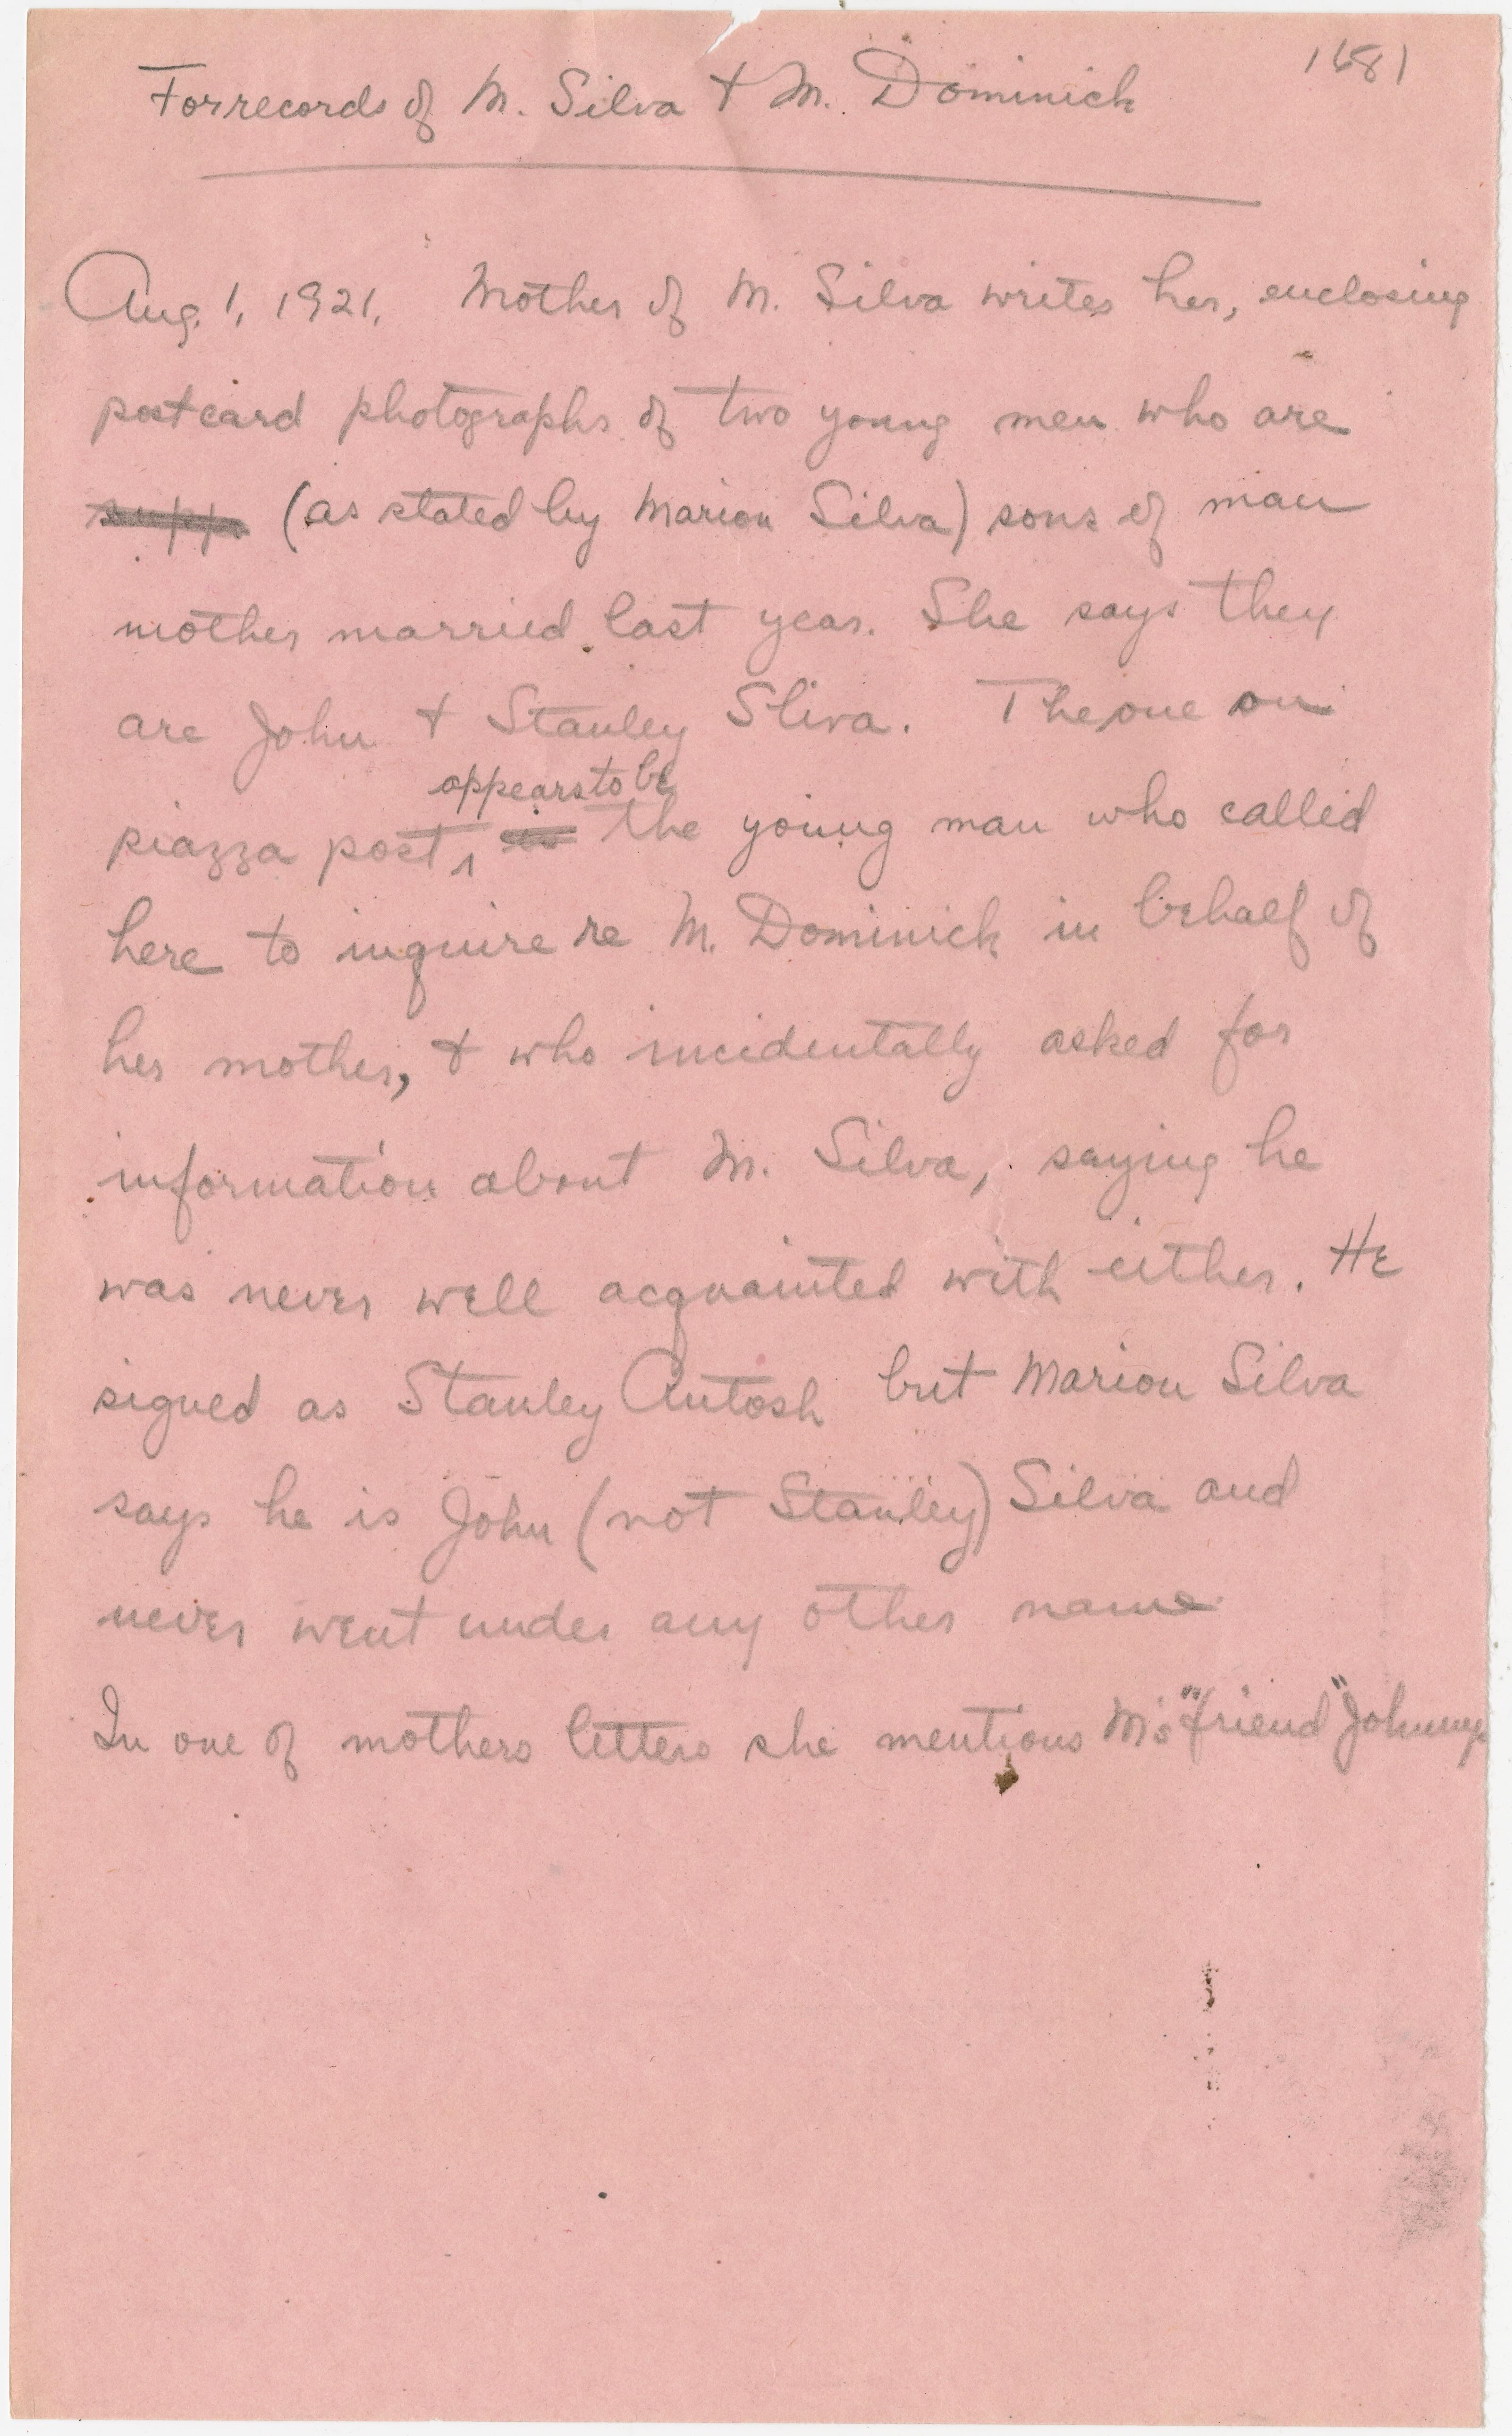 1681
For records of M. Silva + M. Dominick
Aug. 1, 1921. Mother of M. Silva writes her, enclosing
postcard photographs of two young men who are
supp. (as stated by Marion Silva) sons of man
mother married last year. She says they
are John + Stanley Sliva. The one on
appears to be
piazza post, is the young man who called
here to inquire re M. Dominick in behalf of
her mother, + who incidentally asked for
information about M. Silva, saying he
was never well acquainted with either. He
signed as Stanley Antosh but Marion Silva
says he is John (not Stanley) Silva and
never went under any other name
In one of mothers letters she mentions M's "friend" Johnny